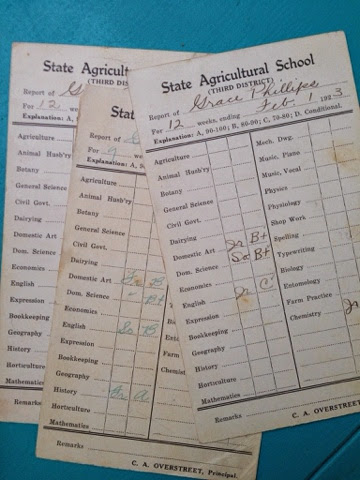 State Agricult
(THIRD
Report of
For 12 we
Explanation: A,
Agriculture
Animal Husb'ry
Botany
General Science
Civil Govt.
Dairying
Domestic Art
Dom. Science
Economics
English
Expression
Bookkeeping
Geography
History
Horticulture
Mathematics
Remarks
Stat
Report of
For 9 we
Explanation: A, 9
Agriculture
Animal Husb'ry
Botany
General Science
Civil Govt.
Dairying
Domestic Art B
Dom. Science " B+
Economics
English So B
Expression
Bookkeeping
Geography
History A
Horticulture
Mathematics
Farm
Chemist
Remarks
C. A. OVERSTREET, Principal.
State Agricultural School
(THIRD DISTRICT)
Report of Grace Phillips
For 12 weeks, ending Feb. 1 1923
Explanation: A, 90-100; B, 80-90; C, 70-80; D. Conditional.
Agriculture Mech. Dwg.
Animal Husb'ry Music, Piano
Botany Music, Vocal
General Science Physics
Civil Govt. Physiology
Dairying Shop Work
Domestic Art Jr B+ Spelling
Dom. Science So B+ Typewriting
Economics Biology
English Jr C Entomology
Expression Farm Practice
Bookkeeping Chemistry Jr
Geography
History
Horticulture
Mathematics
Remarks
C. A. OVERSTREET